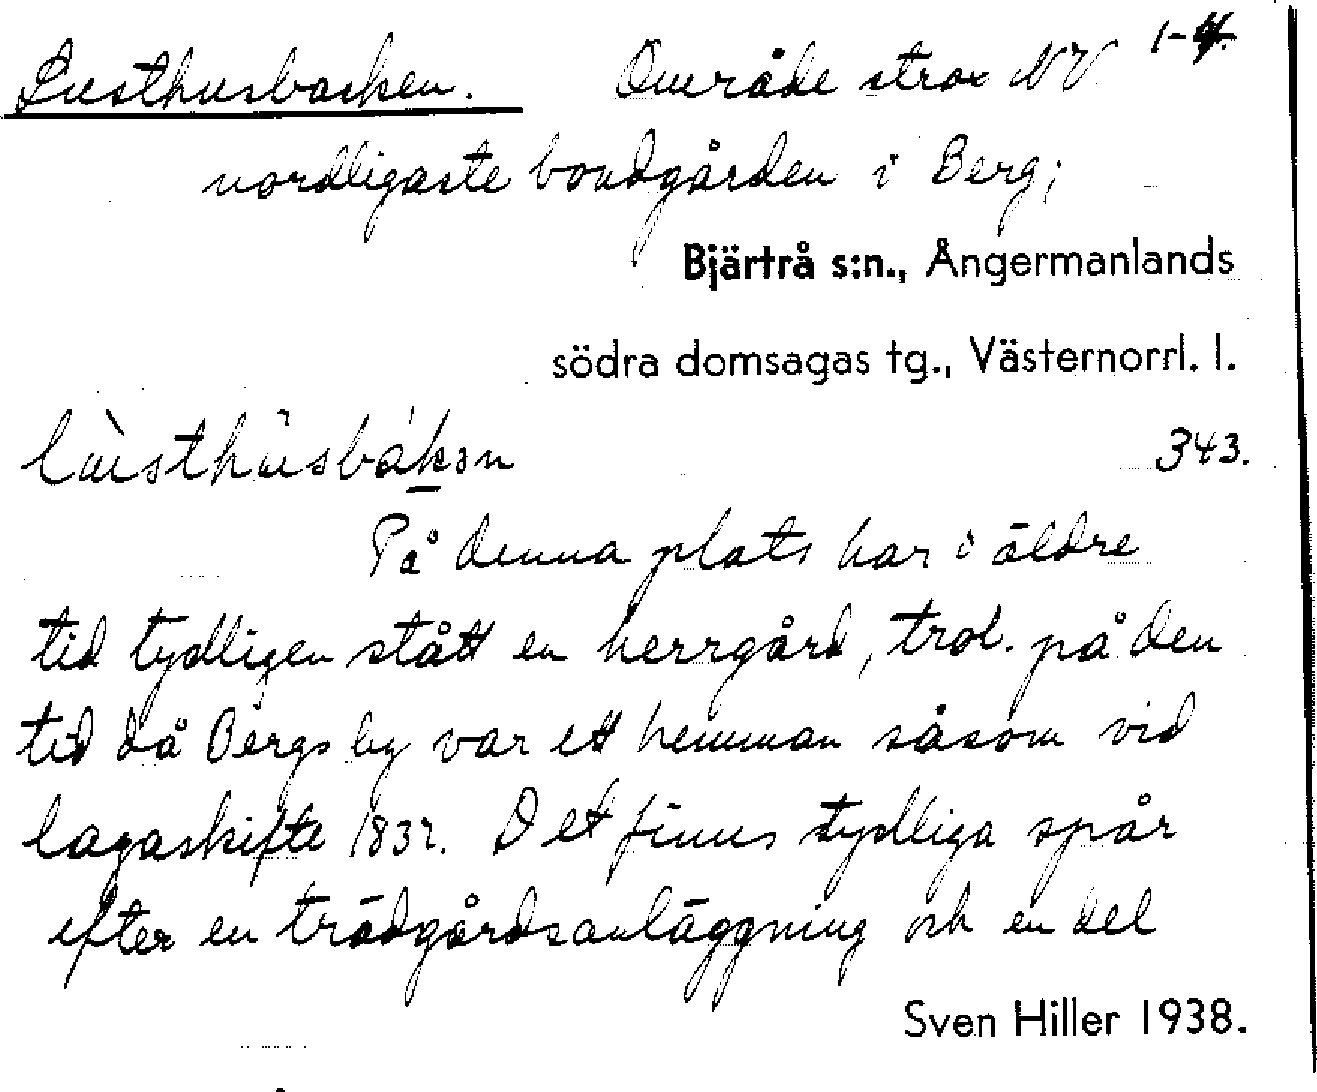 Lusthusbacken. Område strax NV 1-4.
nordligaste bondgården i Berg;
Bjärtrå s:n., Ångermanlands
södra domsagas tg., Västernorrl. l.
lùsthùsbák̠ən 343.
På denna plats har i äldre
tid tydligen stått en herrgård, trol. på den
tid då Bergs by var ett hemman såsom vid
lagaskifte 1832. Det finns tydliga spår
efter en trädgårdsanläggning och en del
Sven Hiller 1938.